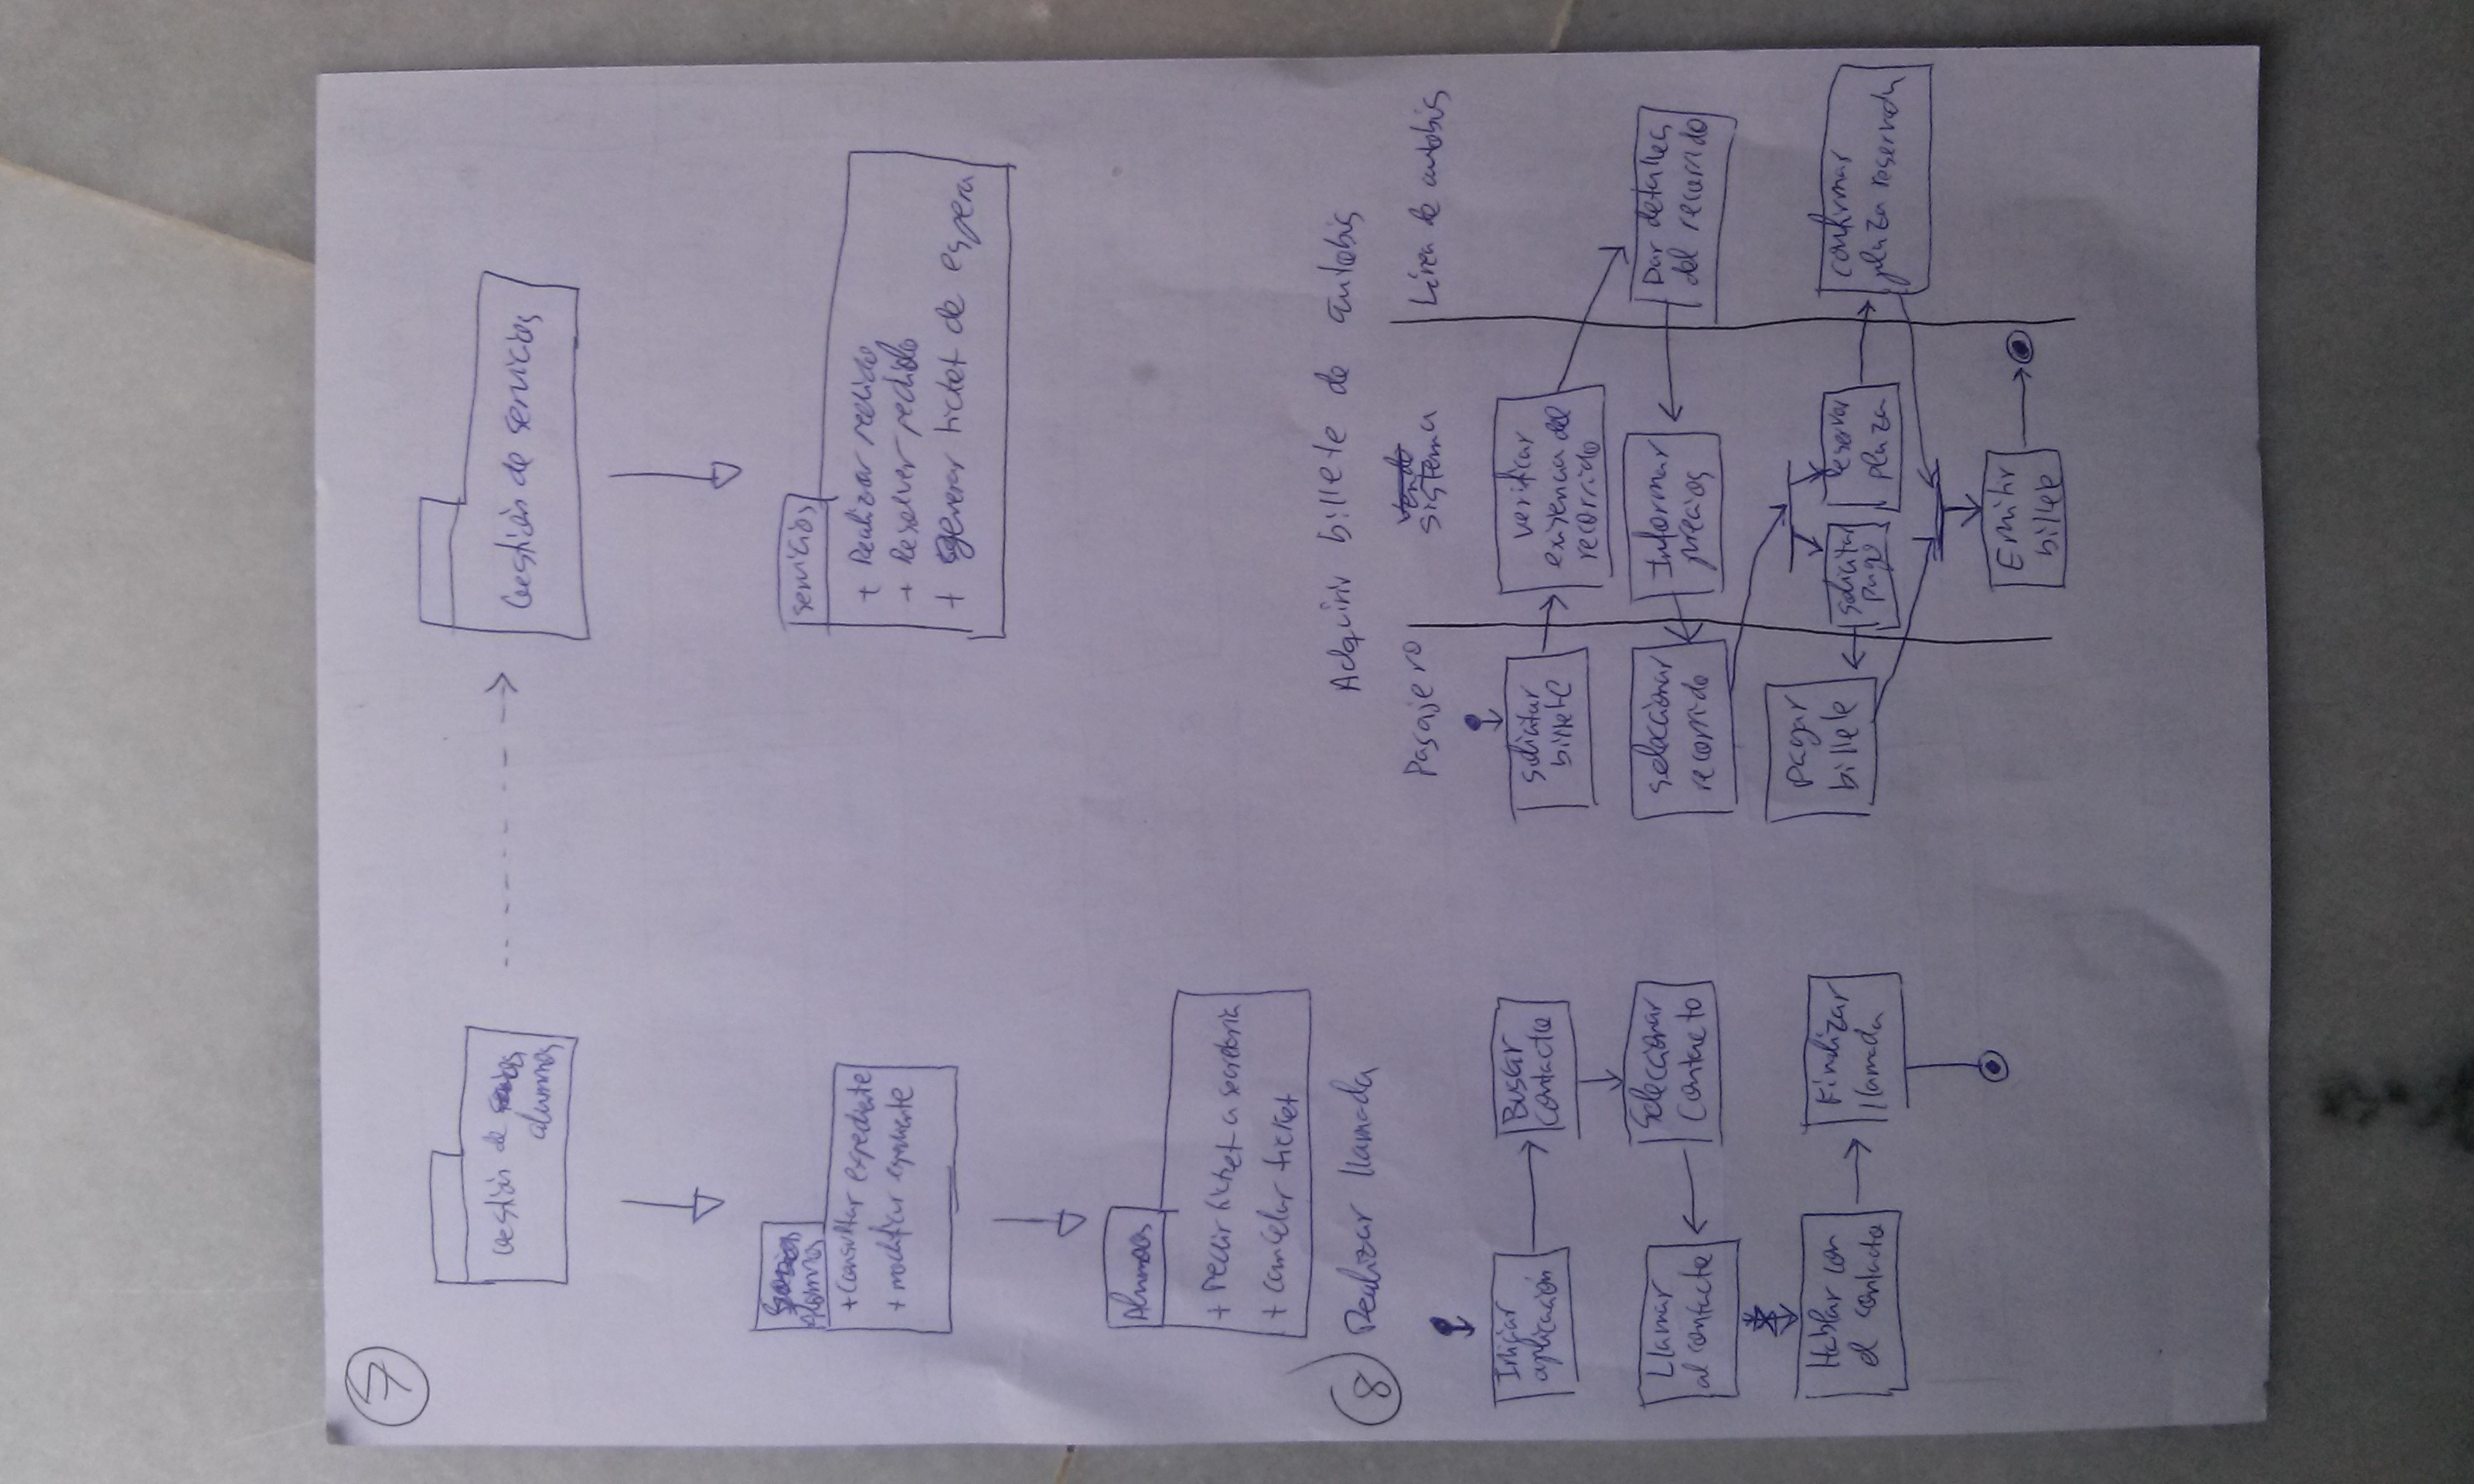 7
Gestión de
alumnos
Gestión de servicios
Alumnos
+ Consultar expediente
+ modificar expediente
servicios
+ Realizar pedido
+ Resolver pedido
+ generar ticket de espera
Alumnos
+ Pedir ticket a secretaria
+ cancelar ticket
8
Realizar llamada
Iniciar
aplicación
Buscar
contacto
Seleccionar
contacto
Llamar
al contacto
Hablar con
el contacto
Finalizar
llamada
Adquirir billete de autobús
Pasajero
sistema
Línea de autobús
solicitar
billete
verificar
existencia del
recorrido
Dar detalles
del recorrido
Informar
precios
seleccionar
recorrido
pagar
billete
solicitar
pago
reservar
plaza
confirmar
plaza reservada
Emitir
billete